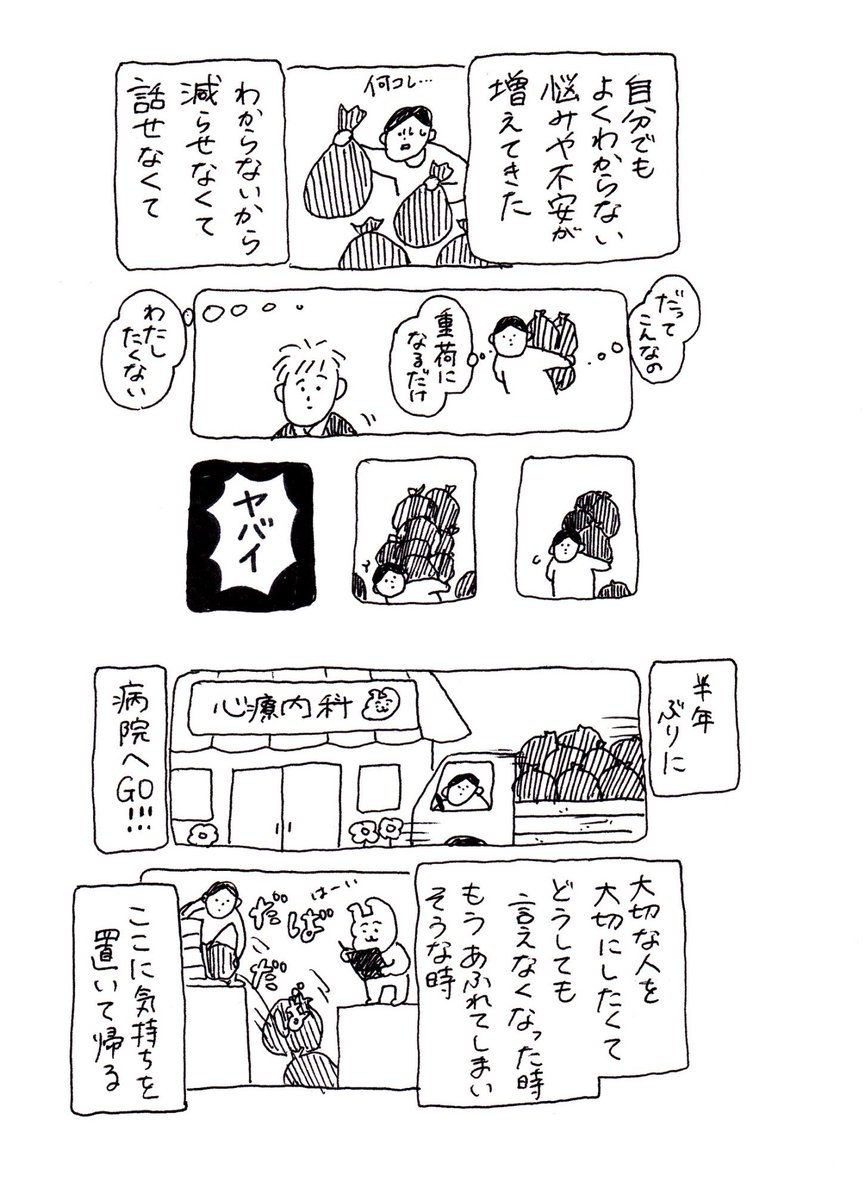 自分でも
よくわからない
悩みや不安が
増えてきた
何コレ…
わからないから
減らせなくて
話せなくて
だって
こんなの
重荷に
なるだけ
わたし
たくない
ヤバイ
半年
ぶりに
心療内科
病院へGO!!!
大切な人を
大切にしたくて
どうしても
言えなくなった時
もうあふれてしまい
そうな時
はーい
だば
だ
ここに気持ちを
置いて帰る